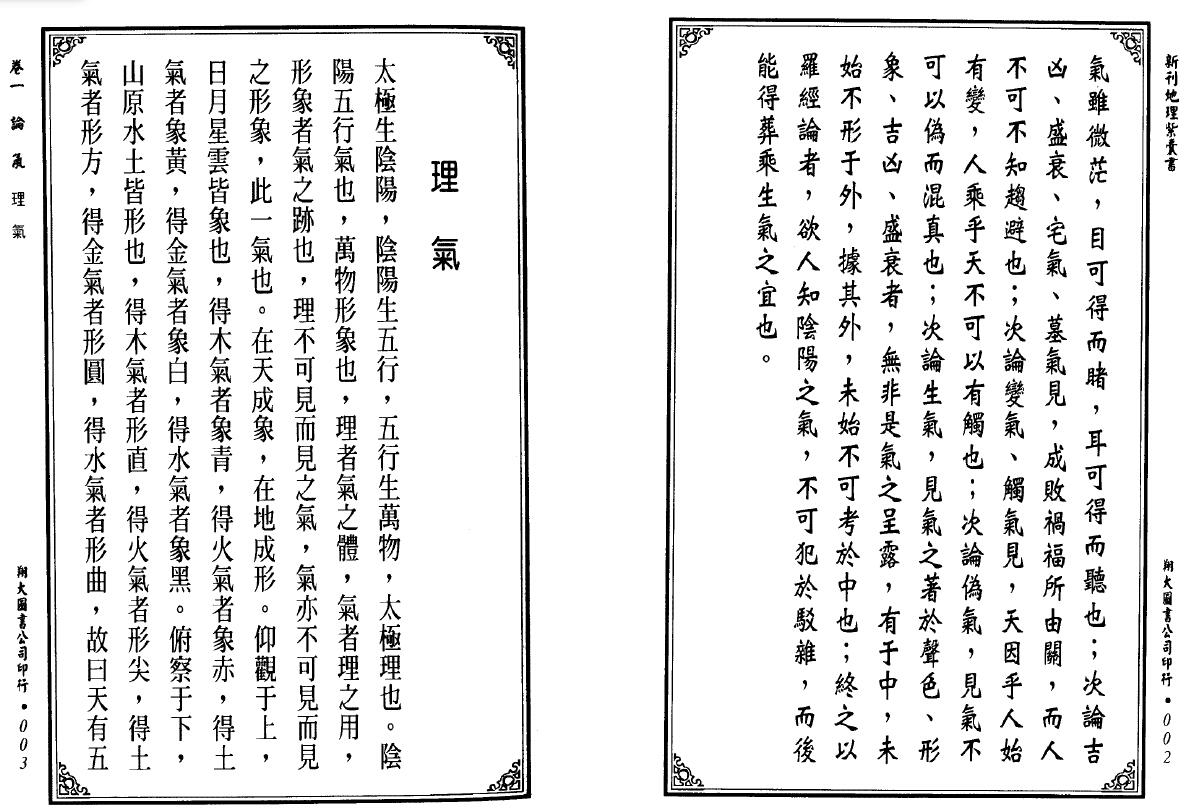 新刊地理紫囊書
氣雖微茫，目可得而睹，耳可得而聽也；次論吉
凶、盛衰、宅氣、墓氣見，成敗禍福所由關，而人
不可不知趨避也；次論變氣、觸氣見，天因乎人始
有變，人乘乎天不可以有觸也；次論偽氣，見氣不
可以偽而混真也；次論生氣，見氣之著於聲色、形
象、吉凶、盛衰者，無非是氣之呈露，有于中，未
始不形于外，據其外，未始不可考於中也；終之以
羅經論者，欲人知陰陽之氣，不可犯於駁雜，而後
能得葬乘生氣之宜也。
翔大圖書公司印行•002
理氣
太極生陰陽，陰陽生五行，五行生萬物，太極理也。陰
陽五行氣也，萬物形象也，理者氣之體，氣者理之用，
形象者氣之跡也，理不可見而見之氣，氣亦不可見而見
之形象，此一氣也。在天成象，在地成形。仰觀于上，
日月星雲皆象也，得木氣者象青，得火氣者象赤，得土
氣者象黃，得金氣者象白，得水氣者象黑。俯察于下，
山原水土皆形也，得木氣者形直，得火氣者形尖，得土
氣者形方，得金氣者形圓，得水氣者形曲，故曰天有五
卷一 論氣 理氣
翔大圖書公司印行•003